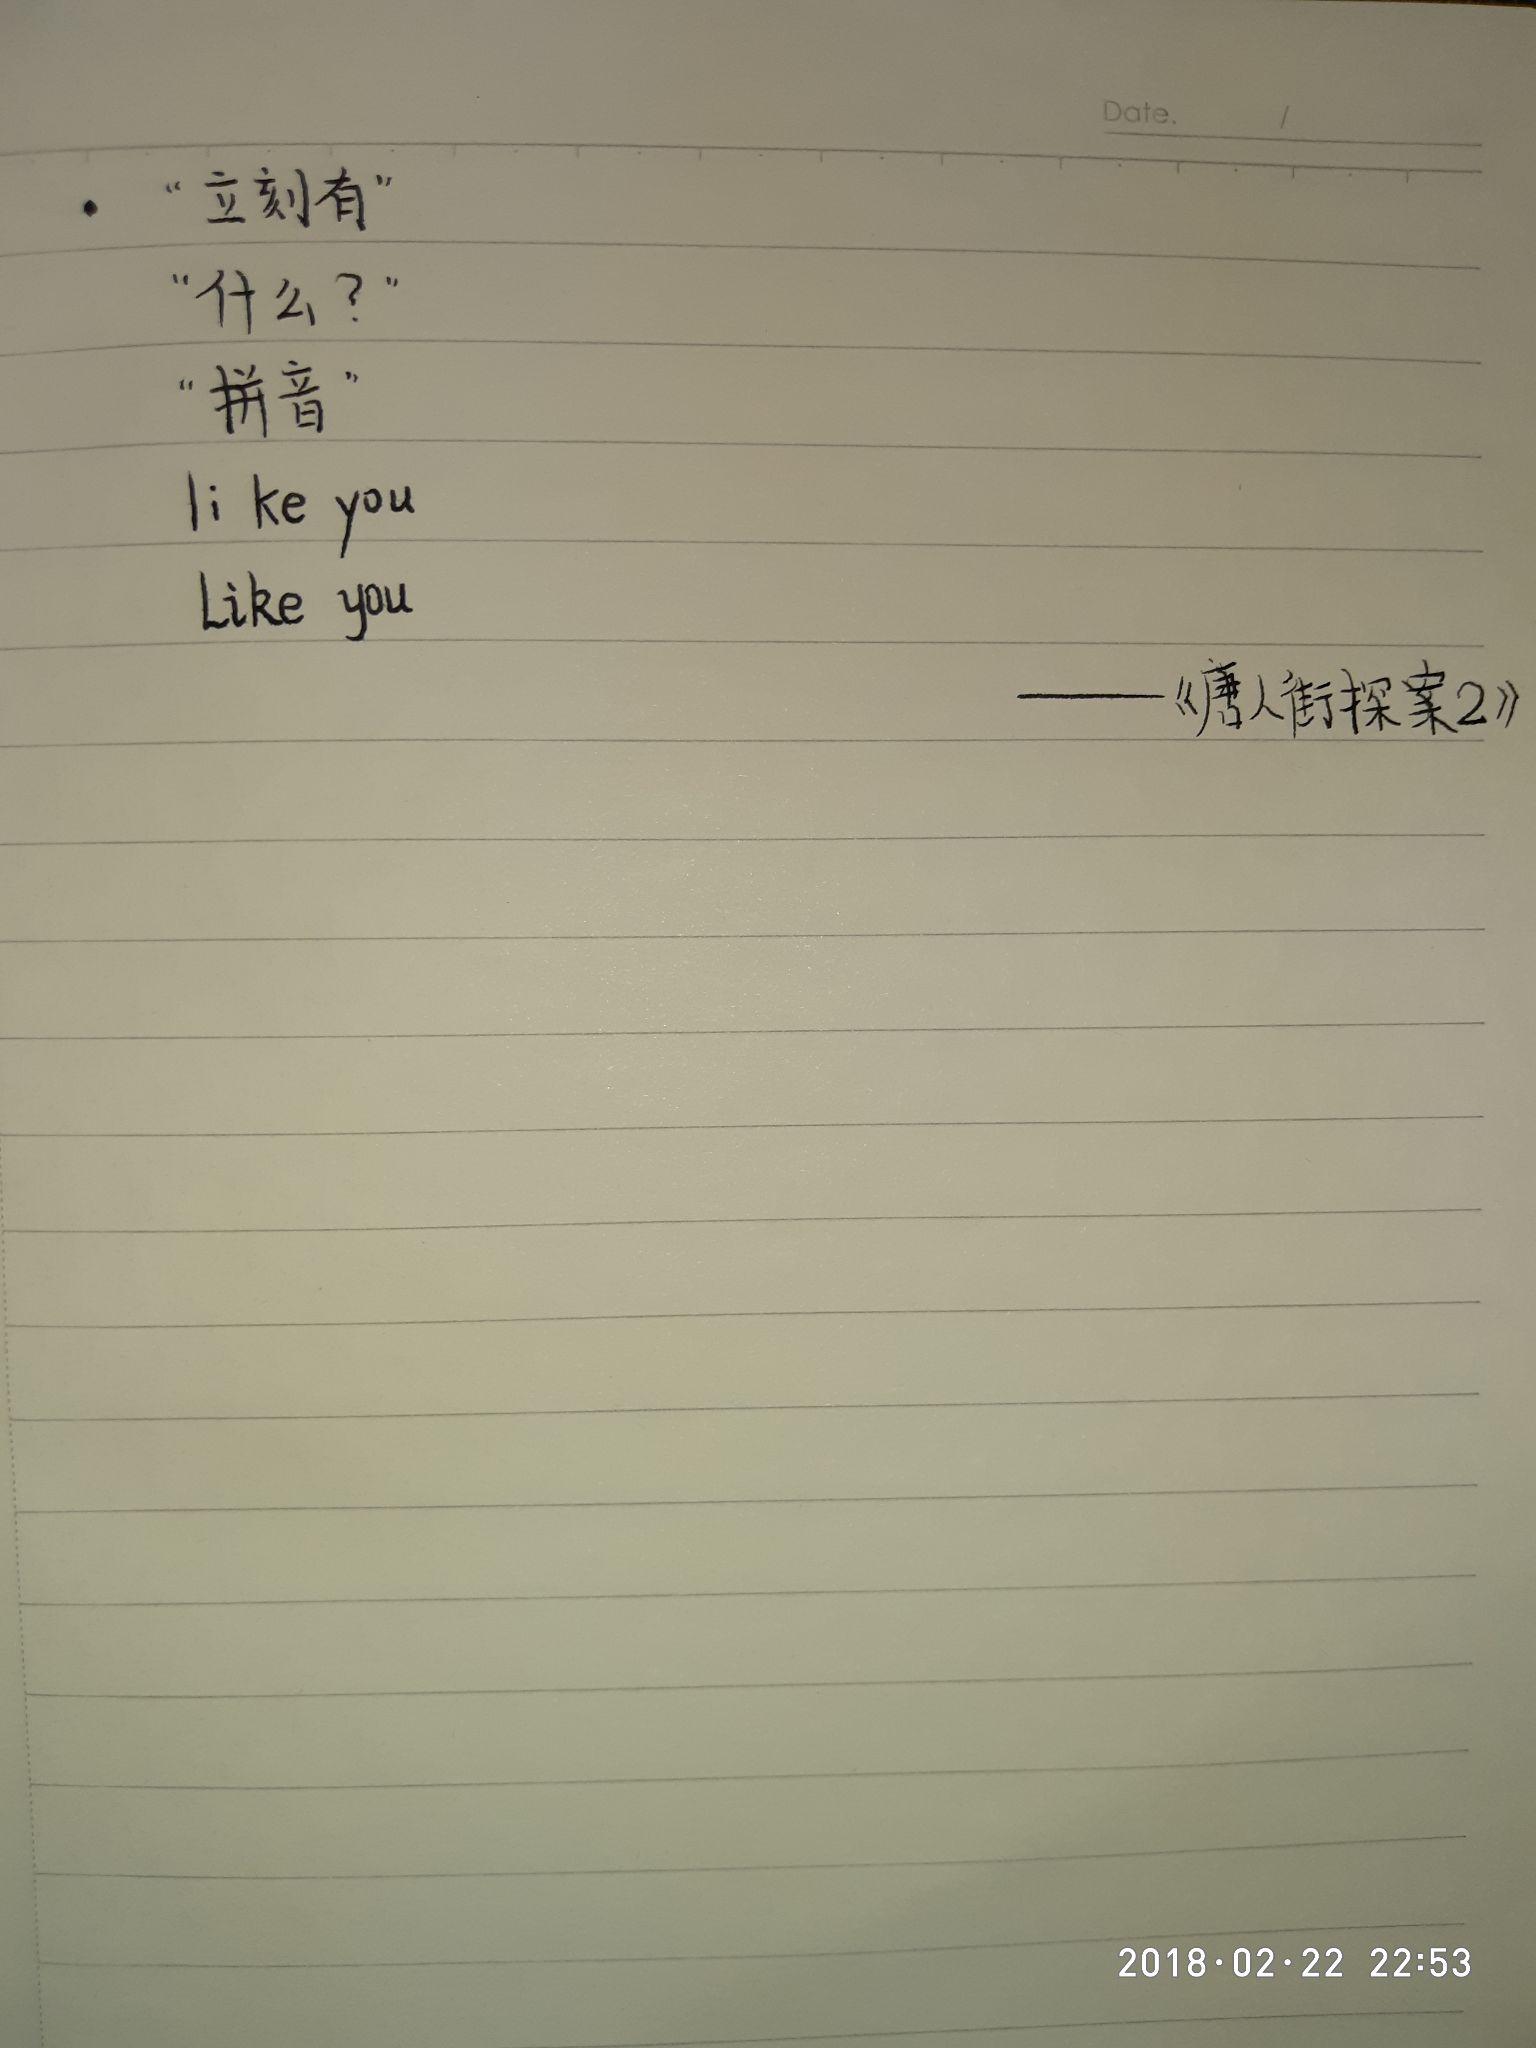 Date. /
• “立刻有”
“什么？”
“拼音”
li ke you
Like you
——《唐人街探案2》
2018·02·22 22:53